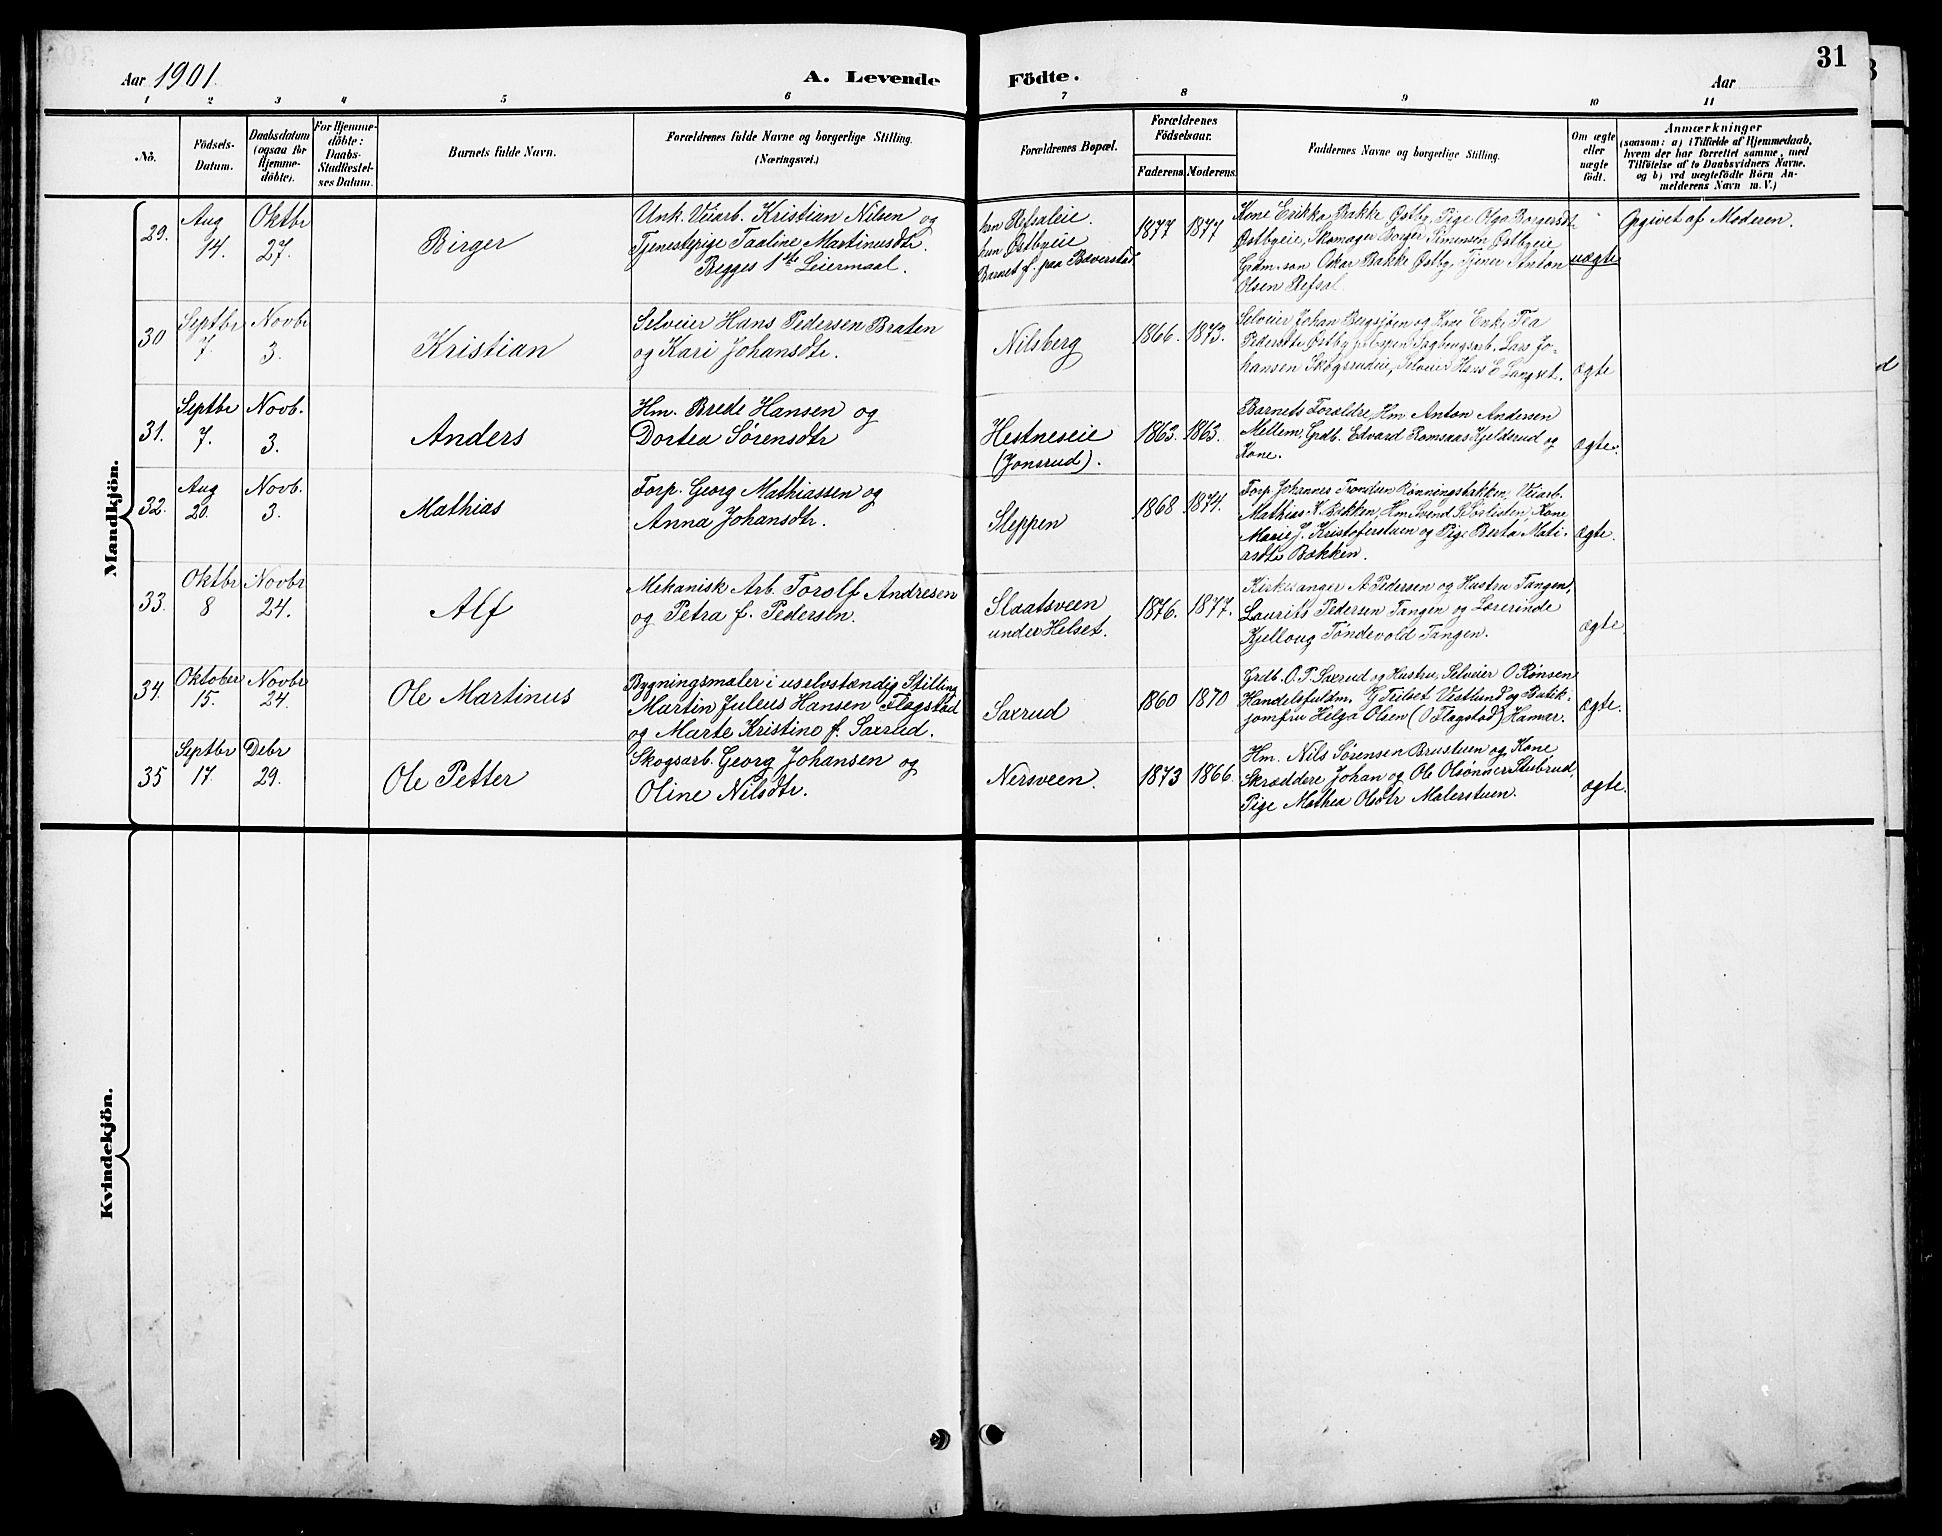 Aar 1901.
A. Levende Födte.
Aar
31
1 2 3 4 5 6 7 8 9 10 11
No.
Födsels-
Datum.
Daabsdatum
(ogsaa for
Hjemme-
döbte).
For Hjemme-
döbte:
Daabs-
Stadfæstel-
ses Datum.
Barnets fulde Navn.
Forældrenes fulde Navne og borgerlige Stilling.
(Næringsvei.)
Forældrenes Bopæl.
Forældrenes
Födselsaar.
Faderens. Moderens.
Faddernes Navne og borgerlige Stilling.
Om ægte
eller
uægte
födt.
Anmærkninger
(saasom: a) i Tilfælde af Hjemmedaab,
hvem der har forrettet samme, med
Tilföielse af to Daabsvidners Navne.
og b) ved uægtefödte Börn An-
melderens Navn m. V.)
Mandkjön.
29.
Aug
14.
Oktbr
27.
Birger
Unk. Veiarb. Kristian Nilsen og
Tjenestepige Taaline Martinusdtr.
Begges 1ste Leiermaal.
han Refsaleie.
hun Østbyeie
Barnet f. paa Bæverstad
1877 1877
Kone Erikka Bakke Østby, Pige Olga Borgersdtr
Østbyeie, Skomager Borger Simensen Østbyeie
Grdm.søn Oskar Bakke Østby, Tjener Anton
Olsen Refsal.
uægte
Opgivet af Moderen.
30
Septbr
7.
Novbr
3.
Kristian
Selveier Hans Pedersen Braten
og Kari Johansdtr.
Nilsberg
1866. 1873.
Selveier Johan Bergsjøen og Kone Enke Tea
Pedersdtr Østby Lars Jo-
hansen Skogsrudeie, Selveier Hans E Langset.
ægte
31.
Septbr
7.
Novb.
3.
Anders
Hm. Brede Hansen og
Dortea Sørensdtr
Hestneseie
(Jonsrud).
1863. 1863.
Barnets Forældre, Hm Anton Andersen
Mellem, Grdb. Edvard Romsaas Kjeldsrud og
Kone.
ægte.
32.
Aug
20.
Novb.
3.
Mathias
Forp. Georg Mathiassen og
Anna Johansdtr.
Sleppen
1868 1874.
Forp Johannes Trondsen Rønningsbakken, Veiarb.
Mathias K. Bakken, Hm Svend Sørlisten Kone
Marie J. Kristoferstuen og Pige Berta Mati-
asdtr Bakken.
ægte.
33.
Oktbr
8
Novbr
24.
Alf
Mekanisk Arb. Torolf Andresen
og Petra f. Pedersen.
Slaatsveen
under Helset.
1876. 1877.
Kirkesanger A Pedersen og Hustru Tangen,
Laurits Pedersen Tangen og Lærerinde
Kjellaug Tøndevold Tangen.
ægte.
34.
Oktober
15.
Novbr
24.
Ole Martinus
Bygningsmaler i uselvstændig Stilling
Martin Julius Hansen Flagstad
og Marte Kristine f. Saxrud.
Saxrud
1860 1870
Grdb. O. P. Saxrud og Hustru, Selveier O Rønsen
Handelsfuldm. G Trilset Vestlund og Butik-
jomfru Helga Olsen (O Flagstad) Hamar.
ægte.
35
Septbr
17.
Debr
29.
Ole Petter
Skogsarb. Georg Johansen og
Oline Nilsdtr.
Nersveen.
1873 1866.
Hm. Nils Sørensen Brustuen og Kone
Skræddere Johan og Ole Olsønner Stubrud,
Pige Mathea Olsdtr Malerstuen.
ægte.
Kvindekjön.